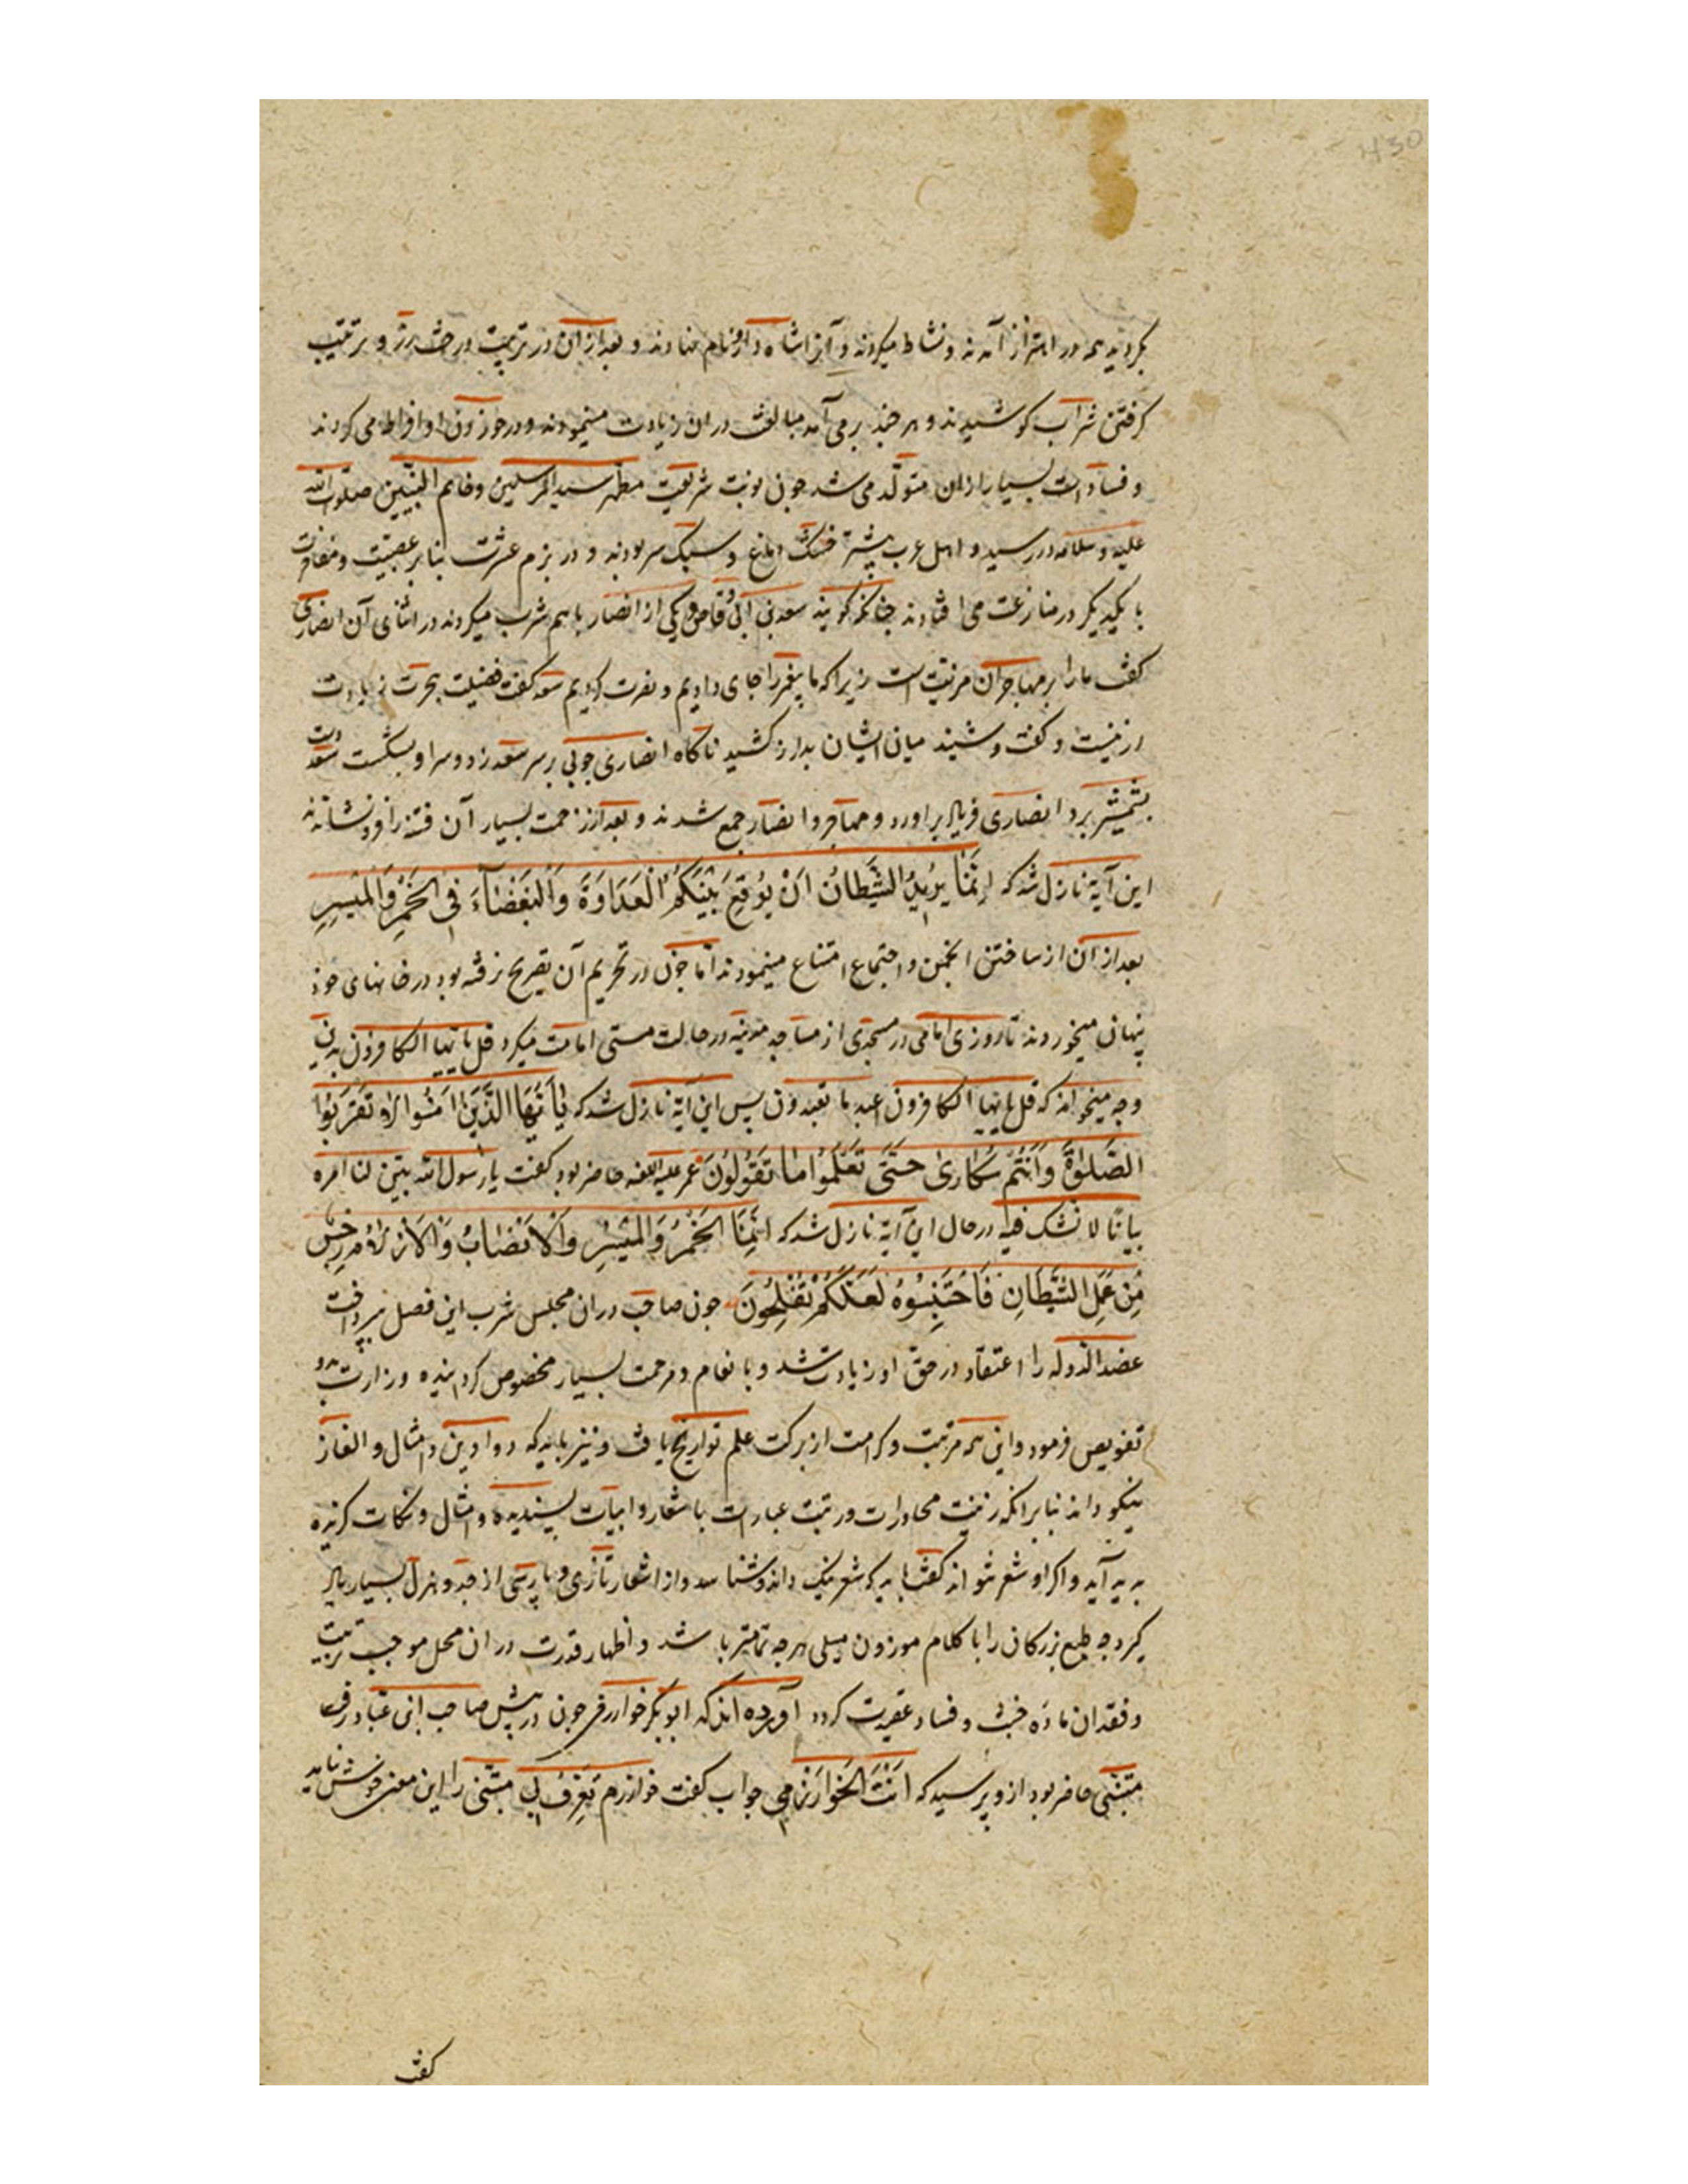 430
بکردند همه در اهتزاز آمدند و نشاط میکردند و آنرا شاه دارو نام نهادند و بعد از آن در تربیت درخت رز و ترتیب
کرفتن شراب کوشیدند و هر چند برمی آمد مبالغت در ان زیادت مینمودند و در خوردن او افراط می کردند
و فسادات بسیار ازان متولد می شد چون نوبت شریعت مطهر سید المرسلین و خاتم النبیین صلوات الله
علیه و سلامه در رسید و اهل عرب بیشتر خشک دماغ و سبک سر بودند و در بزم عشرت بنابر عصبیت و مفاخرت
با یکدیکر در منازعت می افتادند چنانکه کویند سعد بن ابی وقاص و یکی از انصار باهم شرب میکردند در اثنای آن انصاری
کفت ما را بر مهاجران مزیتست زیرا که ما پیغمبر را جای دادیم و نصرت کردیم سعد کفت فضیلت هجرت زیادت
ازینست و کفت و شنید میان ایشان بدراز کشید ناکاه انصاری چوبی بر سر سعد زد و سر او بشکست سعد دست
بشمشیر برد انصاری فریاد براورد و مهاجر و انصار جمع شدند و بعد از زحمت بسیار آن فتنه را فرو نشاندند
این آیة نازل شد که اِنَّمَا یُرِیدُ الشَّیطَانُ اَنْ یُوقِعَ بَیْنَکُمُ الْعَدَاوَةَ وَالْبَغْضَآءَ فِی الْخَمْرِ وَالْمَیْسِرِ
بعد از ان از ساختن انجمن و اجتماع امتناع مینمودند اما چون در تحریم آن تصریح نرفته بود در خانهای خود
پنهان میخوردند تا روزی امامی در مسجدی از مساجد مدینه در حالت مستی امامت میکرد قل یا ایها الکافرون بدین
وجه میخواند که قل یا ایها الکافرون اعبد ما تعبدون پس این آیة نازل شد که یَا اَیُّهَا الَّذِینَ اٰمَنُوا لَا تَقْرَبُوا
الصَّلٰوةَ وَاَنْتُمْ سُکَاریٰ حَتّٰی تَعْلَمُوا مَا تَقُولُونَ عمر علیه اللعنه حاضر بود کفت یا رسول الله بین لنا امره
بیانا لا نشک فیه در حال این آیة نازل شد که اِنَّمَا الْخَمْرُ وَالْمَیْسِرُ وَالْاَنْصَابُ وَالْاَزْلَامُ رِجْسٌ
مِنْ عَمَلِ الشَّیْطَانِ فَاجْتَنِبُوهُ لَعَلَّکُمْ تُفْلِحُونَ چون صاحب در ان مجلس شرب این فصل بپرداخت
عضد الدوله را اعتقاد در حق او زیادت شد و بانعام و مرحمت بسیار مخصوص کردانیده وزارت بدو
تفویض فرمود و این همه مرتبت و کرامت از برکت علم تواریخ یافت و نیز باید که دواوین و امثال و الغاز
نیکو داند بنابرانکه زینت محاورات و رتبت عبارات باشعار و ابیات پسندیده و امثال و نکات کزیده
پدید آید و اکر او شعر نتواند کفت باید که شعر نیک داند و شناسد و از اشعار تازی و پارسی از جد و هزل بسیار یاد
کیرد چه طبع بزرکان را با کلام موزون میلی هر چه تمامتر باشد و اظهار قدرت در ان محل موجب تربیت
و فقدان ماده خبث و فساد عقیدت کردد آورده اند که ابو بکر خوارزمی چون در پیش صاحب ابن عباد رفت
متنبی حاضر بود ازو پرسید که اَنْتَ الْخَوَارَزْمِی جواب کفت خوارزم یَعْرِفُ بِی متنبی را این معنی خوش نیامد
کفت